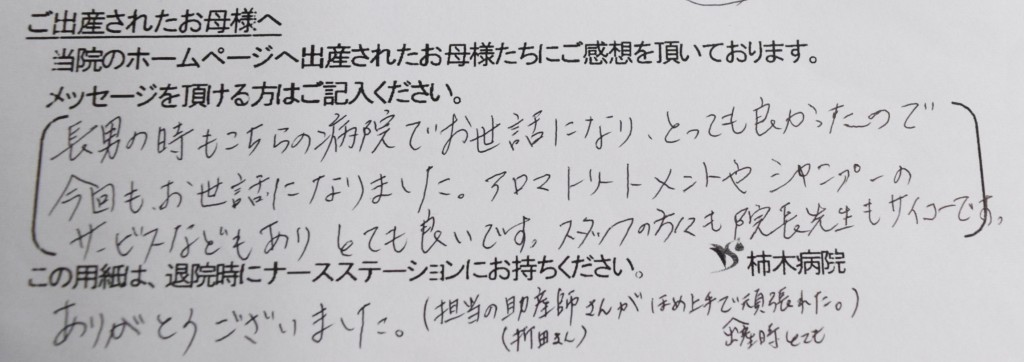 ご出産されたお母様へ
当院のホームページへ出産されたお母様たちにご感想を頂いております。
メッセージを頂ける方はご記入ください。
長男の時もこちらの病院でお世話になり、とっても良かったので
今回もお世話になりました。アロマトリートメントやシャンプーの
サービスなどもありとても良いです。スタッフの方にも院長先生もサイコーです。
この用紙は、退院時にナースステーションにお持ちください。
柿木病院
ありがとうございました。(担当の助産師さんがほめ上手で頑張れた。)
(折田さん)
出産時とても